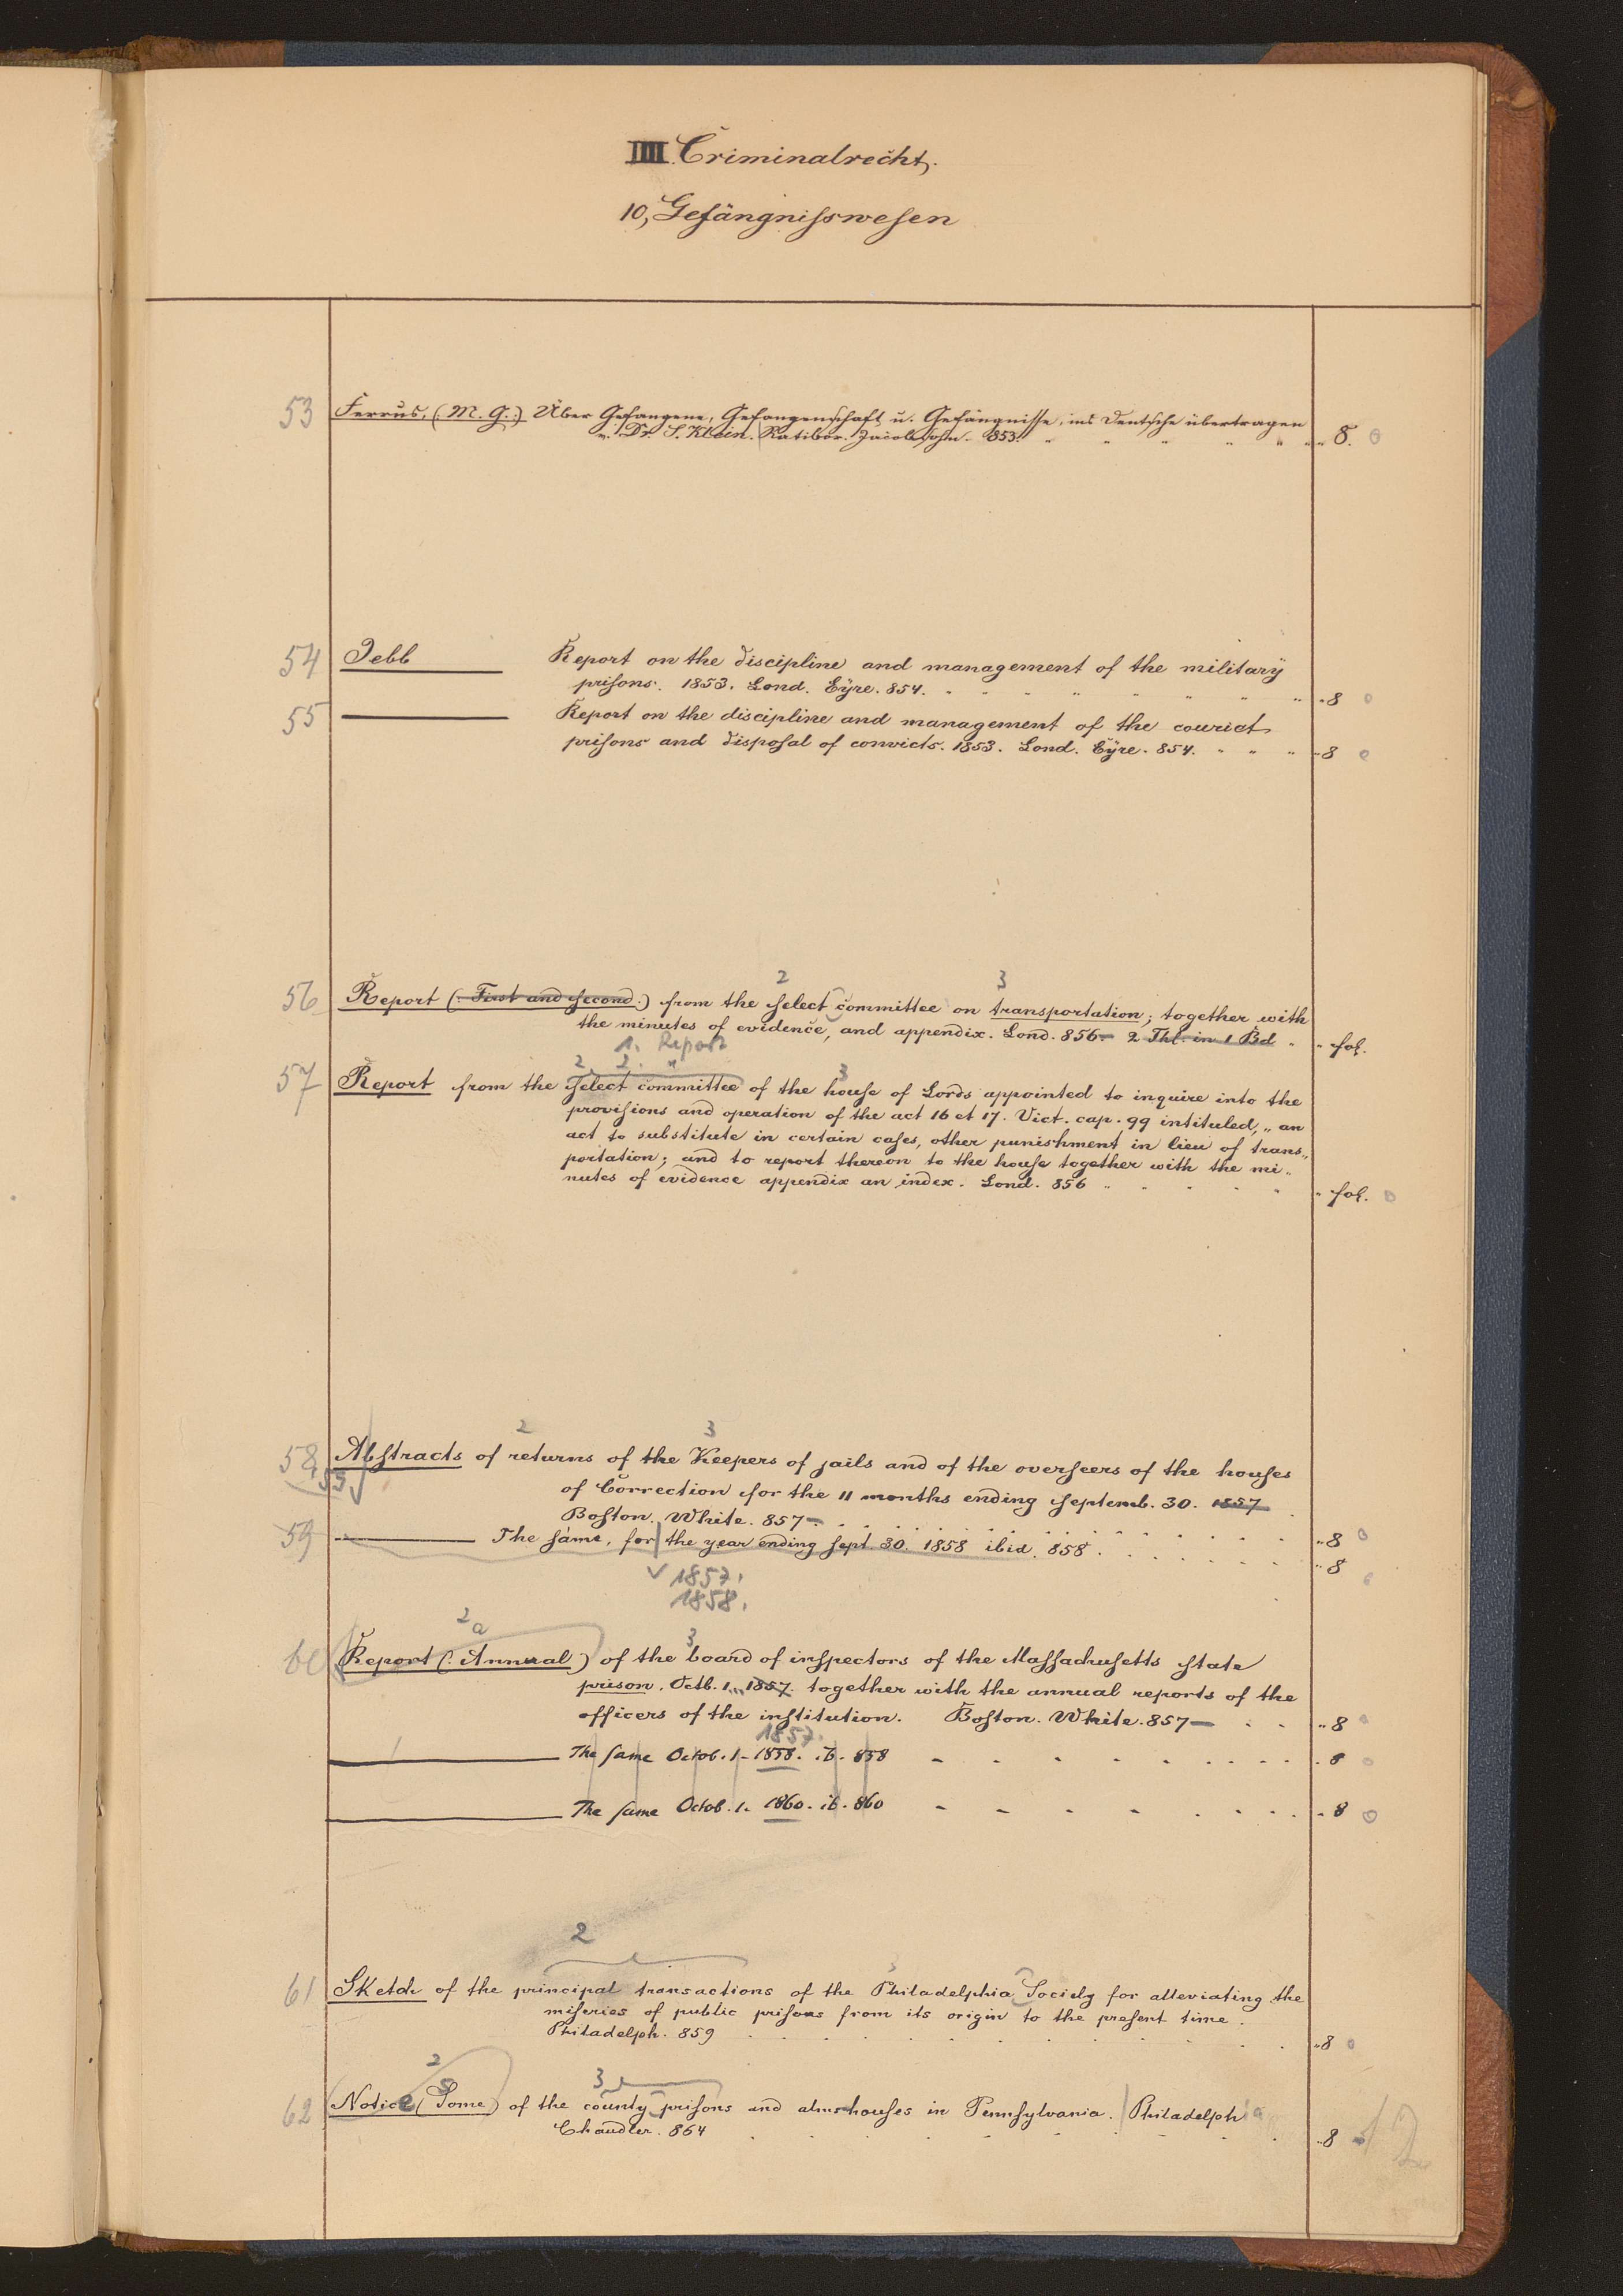 IIII. Criminalrecht.
10, Gefängnisswesen
53 Ferrus, (: M. G. :) Über Gefangene, Gefangenschaft u. Gefängnisse, ins Deutsche übertragen
v. Dr. S. Klein. Ratibor. Jacobsohn. 853. " " " " " " " 8.
54 Jebb Report on the discipline and management of the military
prisons. 1853. Lond. Eyre. 854. " " " " " " " " 8
55 Report on the discipline and management of the convict
prisons and disposal of convicts. 1853. Lond. Eyre. 854. " " " 8
2 3
56 Report (: First and second :) from the select committee on transportation; together with
the minutes of evidence, and appendix. Lond. 856. 2 Thl. in 1 Bd " " fol.
1. Report
2 2. " 3
57 Report from the select committee of the house of Lords appointed to inquire into the
provisions and operation of the act 16 et 17. Vict. cap. 99 intituled, „ an
act to substitute in certain cases, other punishment in lieu of trans„
portation; and to report thereon to the house together with the mi„
nutes of evidence appendix an index. Lond. 856 " " " " " " fol.
2 3
58 Abstracts of returns of the Keepers of jails and of the overseers of the houses
59 of Correction for the 11 months ending septemb. 30. 1857
Boston. White. 857 " 8
59 The same, for the year ending sept. 30. 1858 ibid. 858. " 8
1857.
1858.
2 a 3
60 Report (: Annual ) of the board of inspectors of the Massachusetts state
prison. Octb. 1. 1857. together with the annual reports of the
officers of the institution. Boston. White. 857 " 8
1857.
The same Octob. 1. 1858. ib. 858 8
The same Octob. 1. 1860. ib. 860 8
2
61 Sketch of the principal transactions of the Philadelphia Society for alleviating the
miseries of public prisons from its origin to the present time.
Philadelph. 859 " 8
2 3
62 Notice (Some) of the county prisons and almshouses in Pennsylvania. Philadelphia
Chandler. 864 " 8 12